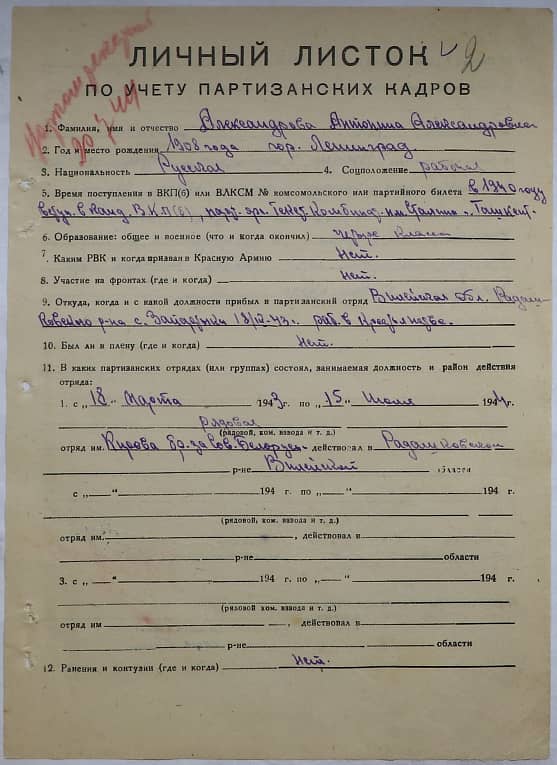 2
ЛИЧНЫЙ ЛИСТОК
ПО УЧЕТУ ПАРТИЗАНСКИХ КАДРОВ
1. Фамилия, имя и отчество Александрова Антонина Александровна
2. Год и место рождения 1908 года гор. Ленинград
3. Национальность Русская 4. Соцположение рабочая
5. Время поступления в ВКП(б) или ВЛКСМ № комсомольского или партийного билета в 1940 году
вступ. в канд. В.К.П(б), парт. орг. Текст. Комбинат им. Сталина г. Ташкент.
6. Образование: общее и военное (что и когда окончил) четыре класса
7. Каким РВК и когда призван в Красную Армию Нет.
8. Участие на фронтах (где и когда) Нет.
9. Откуда, когда и с какой должности прибыл в партизанский отряд Вилейская обл. Радош
ковского р-на с. 18/III-43 г. раб. в
10. Был ли в плену (где и когда) Нет.
11. В каких партизанских отрядах (или группах) состоял, занимаемая должность и район действия
отряда:
1. с „18" Марта 1943 г. по „15" Июля 1944 г.
рядовая
(рядовой, ком. взвода и т. д.)
отряд им. Кирова бр. за Сов. Белорус. действовал в Радошковском
р-не Вилейской области
с „ " 194 г. по „ " 194 г.
(рядовой, ком. взвода и т. д.)
отряд им. , действовал в
р-не области
3. с „ " 194 г. по „ " 194 г.
(рядовой ком. взвода и т. д.)
отряд им , действовал в
р-не области
12. Ранения и контузии (где и когда) Нет.